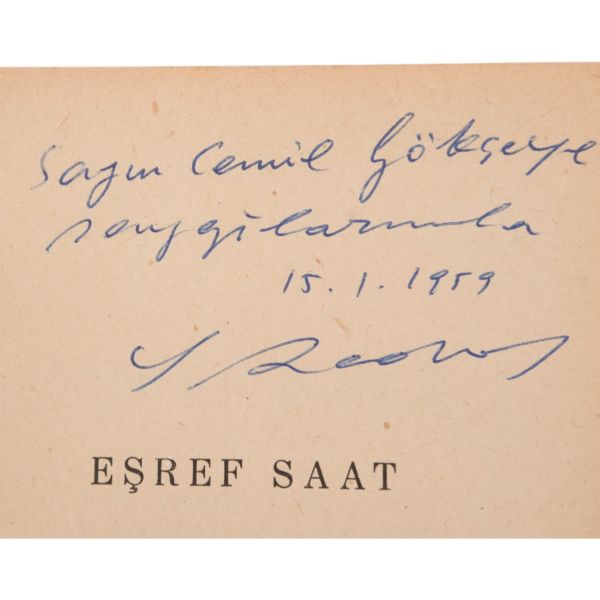 Sayın Cemil Gökçeye
saygılarımla
15.1.1959
EŞREF SAAT